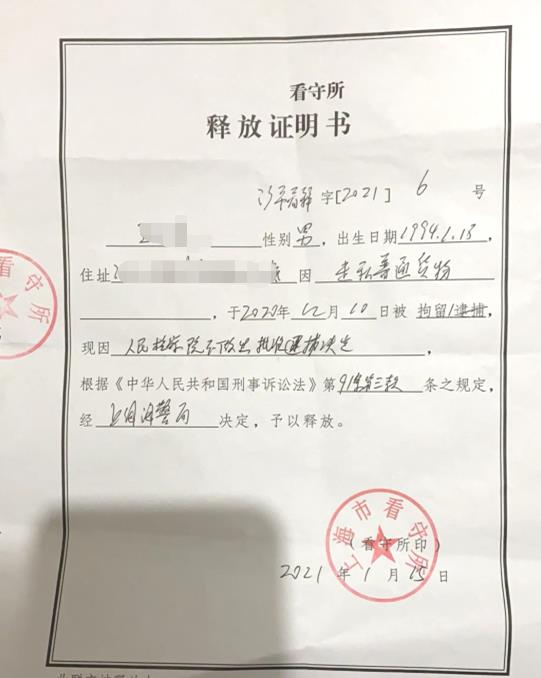 看守所
释放证明书
字[2021] 6 号
性别 男 , 出生日期 1994.1.13 ,
住址 因 走私普通货物
, 于2020年 12月 10日被 拘留/逮捕 ,
现因 人民检察院不做出批准逮捕决定 ,
根据《中华人民共和国刑事诉讼法》第 91条第三款 条之规定,
经 上海海警局 决定, 予以释放。
上海市看守所
(看守所印)
2021 年 1 月 15 日
看守所